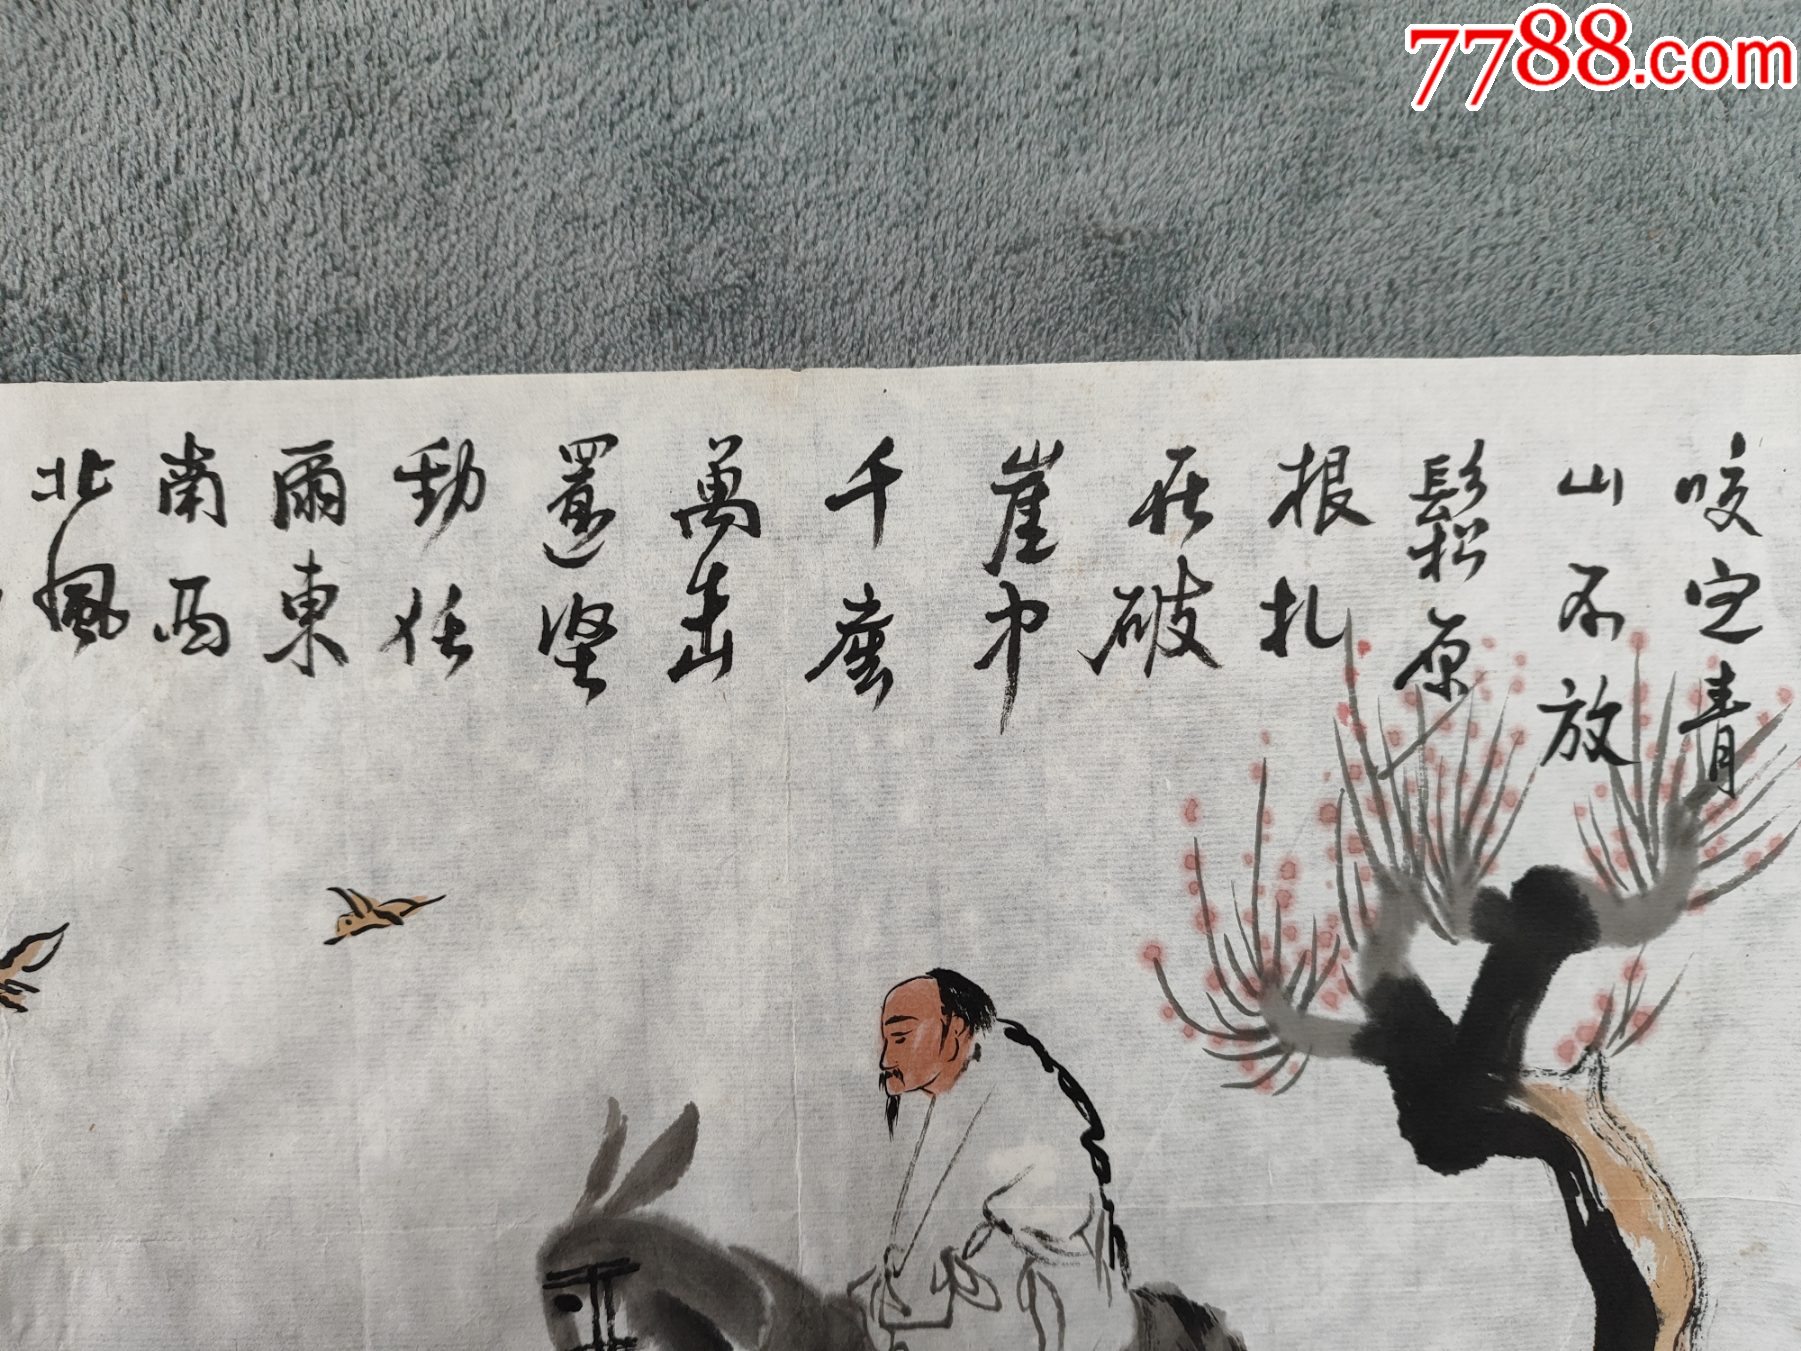 7788.com
咬定青
山不放
鬆原
根扎
在破
崖中
千磨
萬击
還坚
劲任
爾東
南西
北風